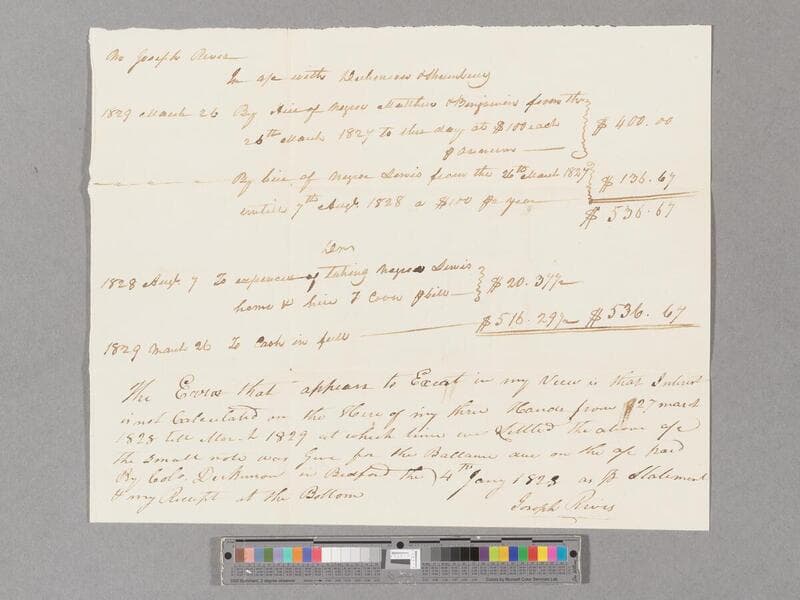 Mr Joseph Rives
In a/c with Dickinson & Shrewsbury
1829 March 26 By Hire of Negroes Matthew & Benjamin from the
26th March 1827 to this day at $100 each $400.00
P annum
By hire of Negroe Lewis from the 26th March 1827 $136.67
untill 7th Augt 1828 a $100 P year
$536.67
Drs
1828 Augt 7 To expences of taking Negroe Lewis
home & hire P bill $20.37½
1829 March 26 To Cash in full $516.29½ $536.67
The Error that appears to Exist in my View is that Interest
is not Calculated on the Hire of my three Hands from 27 march
1828 till March 1829 at which time we Settled the above a/c
the Small note was Give for the Ballance due on the a/c paid
By Colo. Dickinson in Bedford the 4th Jany 1823 as P Statement
& my Receipt at the Bottom
Joseph Rives